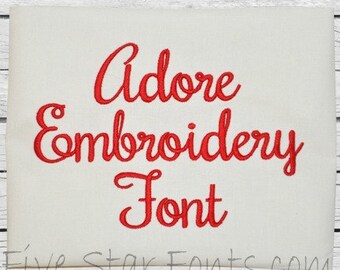 Adore
Embroidery
Font
Five Star Fonts.com